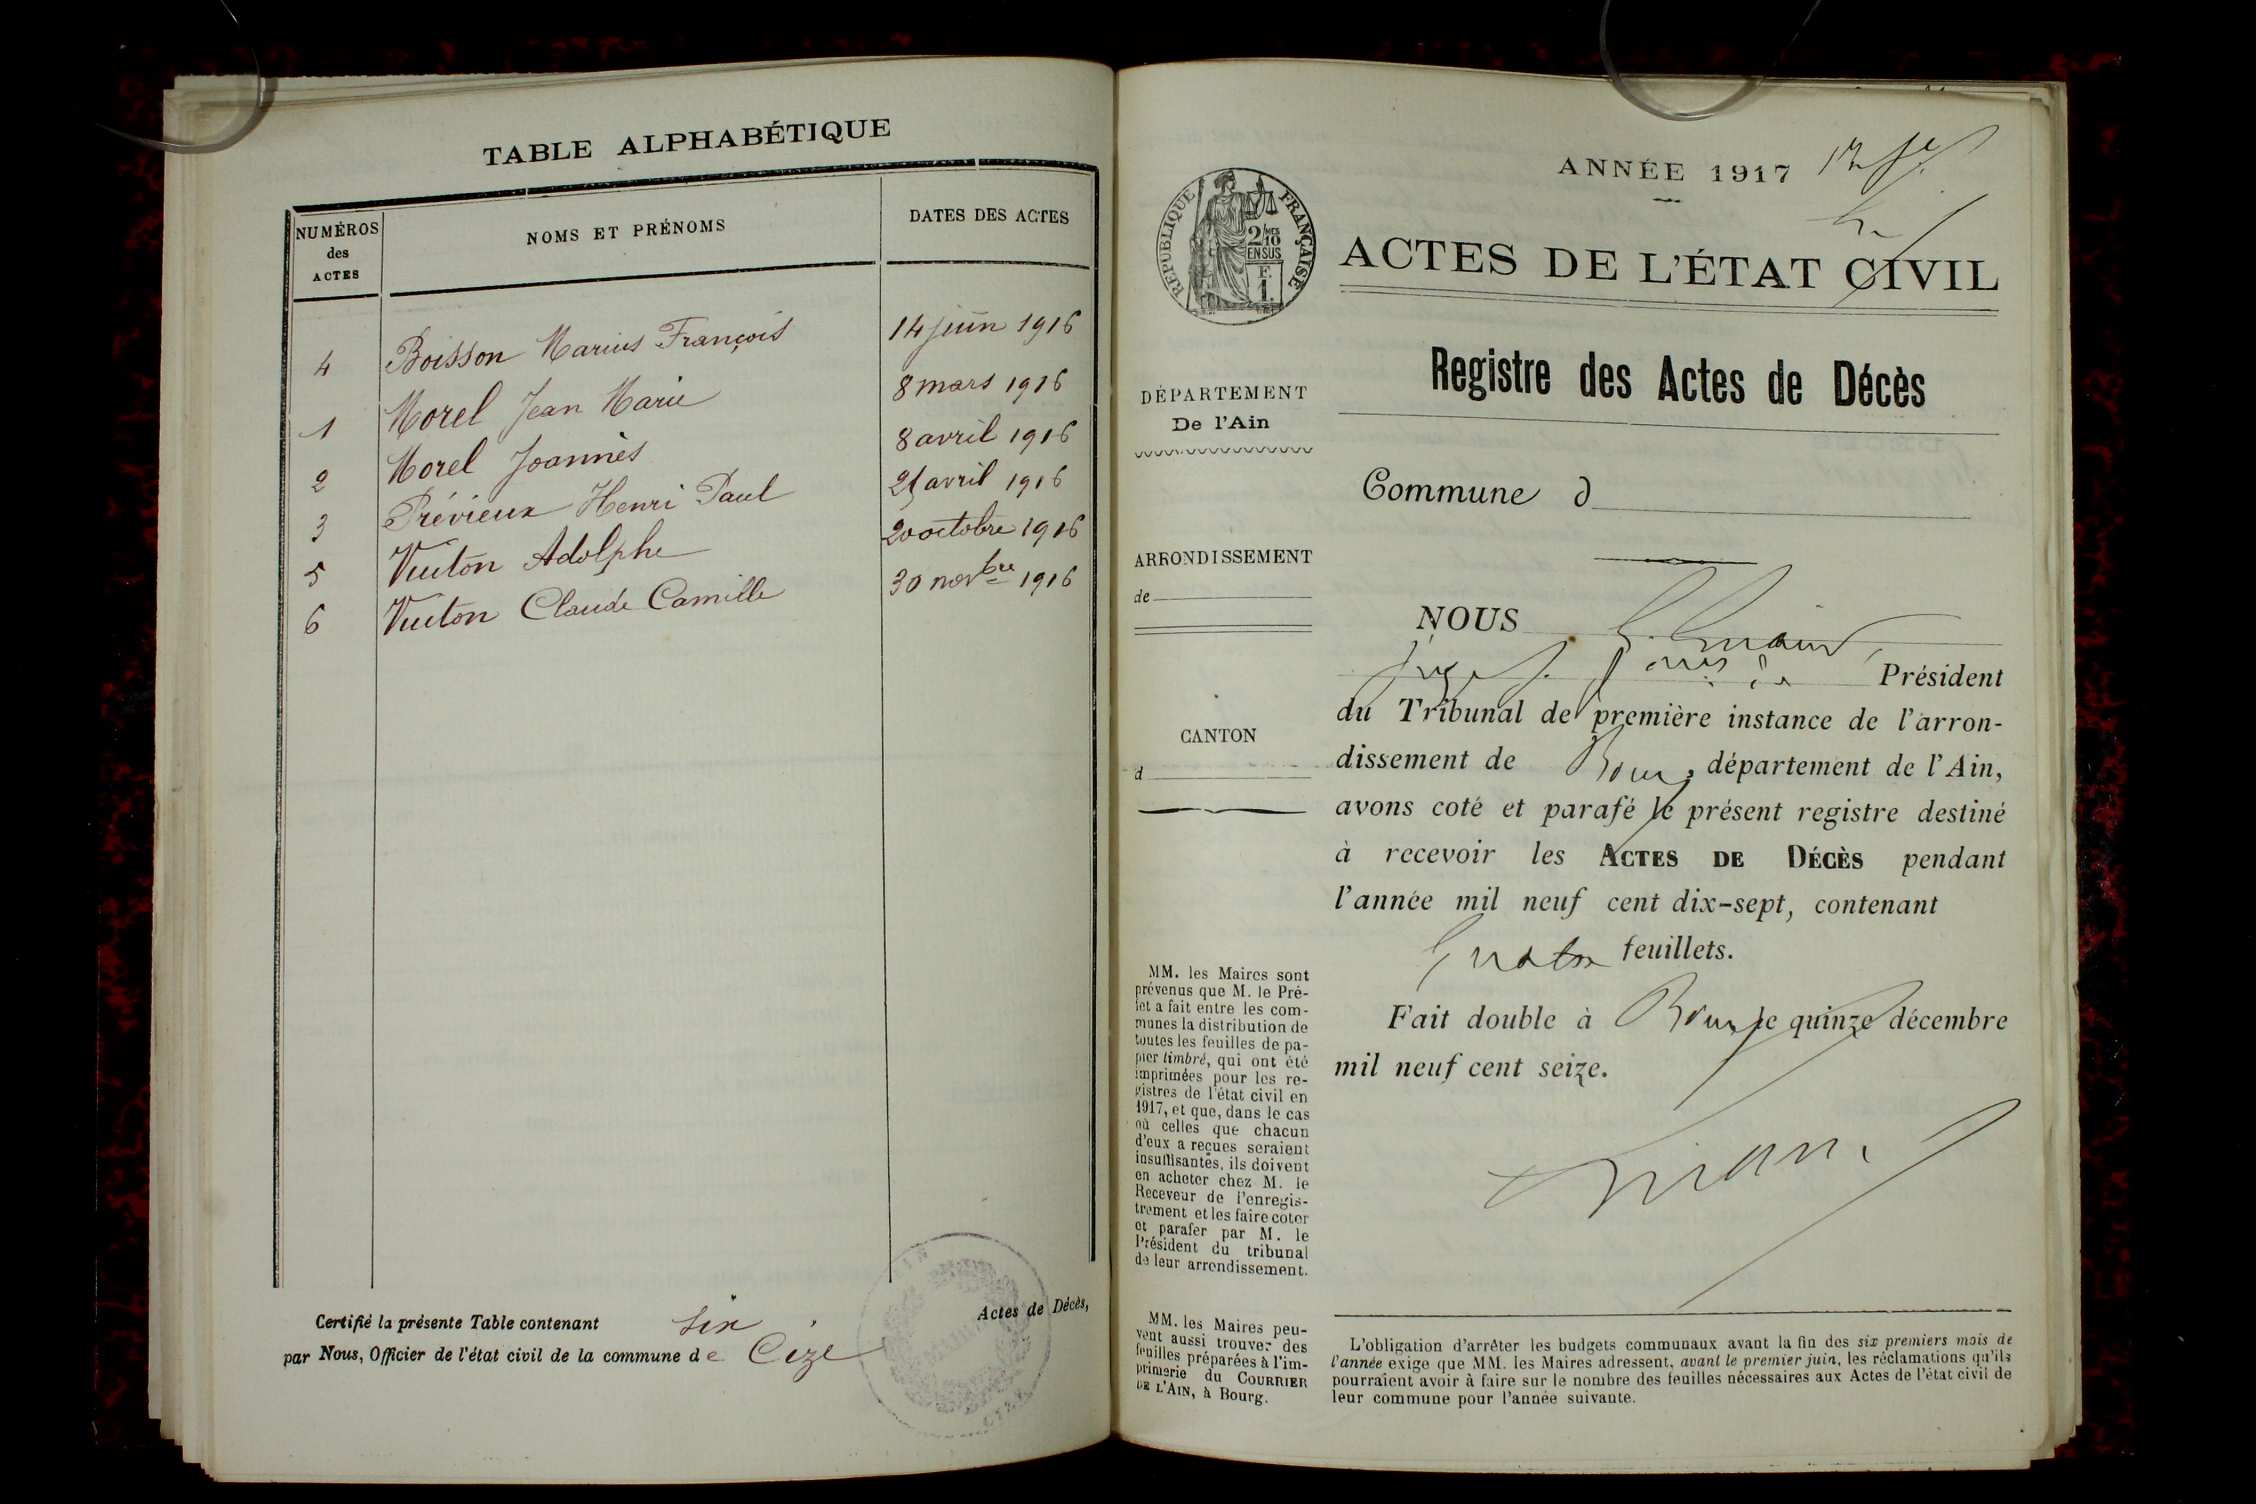 TABLE ALPHABÉTIQUE
NUMÉROS des ACTES
NOMS ET PRÉNOMS
DATES DES ACTES
4 Boisson Marius François 14 juin 1916
1 Morel Jean Marie 8 mars 1916
2 Morel Joannès 8 avril 1916
3 Prévieux Henri Paul avril 1916
5 Vuiton Adolphe 20 octobre 1916
6 Vuiton Claude Camille 30 novbre 1916
Certifié la présente Table contenant six Actes de Décès,
par Nous, Officier de l'état civil de la commune de Cize
ANNÉE 1917
RÉPUBLIQUE FRANÇAISE
2/10 MES
EN SUS
F.
1.
ACTES DE L'ÉTAT CIVIL
Registre des Actes de Décès
DÉPARTEMENT
De l'Ain
Commune d
ARRONDISSEMENT
de
CANTON
d
NOUS
Président
du Tribunal de première instance de l'arron-
dissement de Bourg, département de l'Ain,
avons coté et parafé le présent registre destiné
à recevoir les ACTES DE DÉCÈS pendant
l'année mil neuf cent dix-sept, contenant
quatre feuillets.
Fait double à Bourg le quinze décembre
mil neuf cent seize.
MM. les Maires sont
prévenus que M. le Pré-
fet a fait entre les com-
munes la distribution de
toutes les feuilles de pa-
pier timbré, qui ont été
imprimées pour les re-
gistres de l'état civil en
1917, et que, dans le cas
où celles que chacun
d'eux a reçues seraient
insuffisantes, ils doivent
en acheter chez M. le
Receveur de l'enregis-
trement et les faire coter
et parafer par M. le
Président du tribunal
de leur arrondissement.
MM. les Maires peu-
vent aussi trouver des
feuilles préparées à l'im-
primerie du COURRIER
DE L'AIN, à Bourg.
L'obligation d'arrêter les budgets communaux avant la fin des six premiers mois de
l'année exige que MM. les Maires adressent, avant le premier juin, les réclamations qu'ils
pourraient avoir à faire sur le nombre des feuilles nécessaires aux Actes de l'état civil de
leur commune pour l'année suivante.